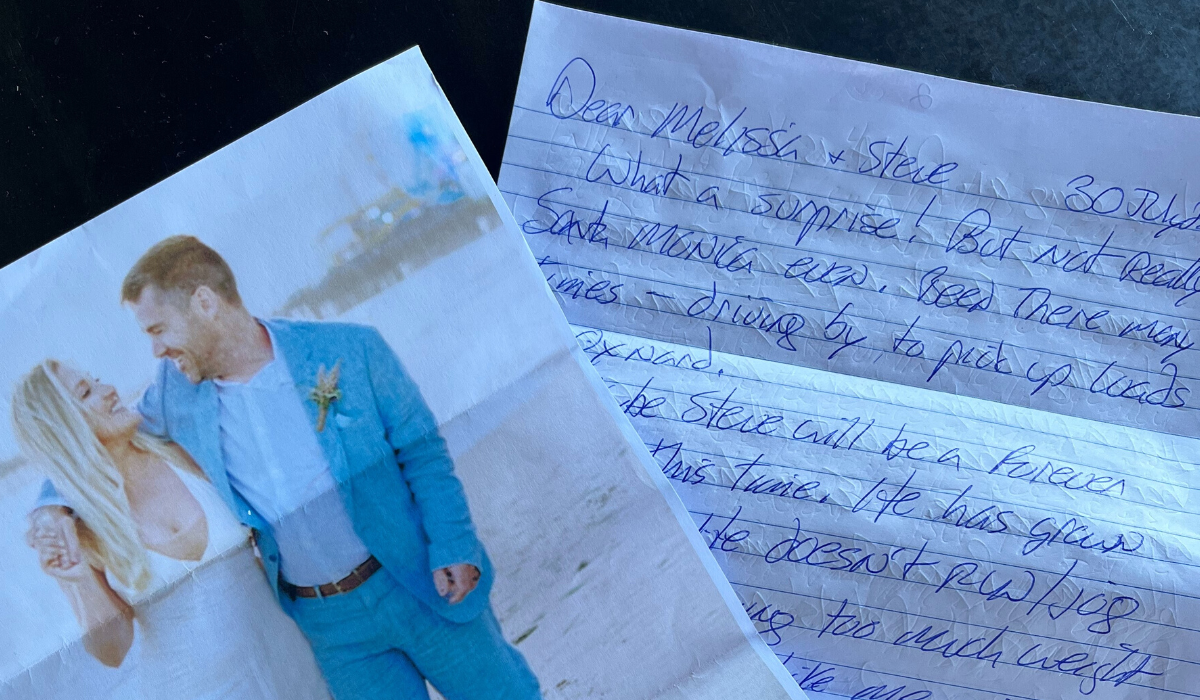 Dear Melissa + Steve
30 July
What a surprise! But not Really
Santa Monica even. Been There many
times - driving by to pick up loads
Oxnard.
be Steve will be a forever
this time. He has grown
He doesn't RUN/jog
too much weight
like me